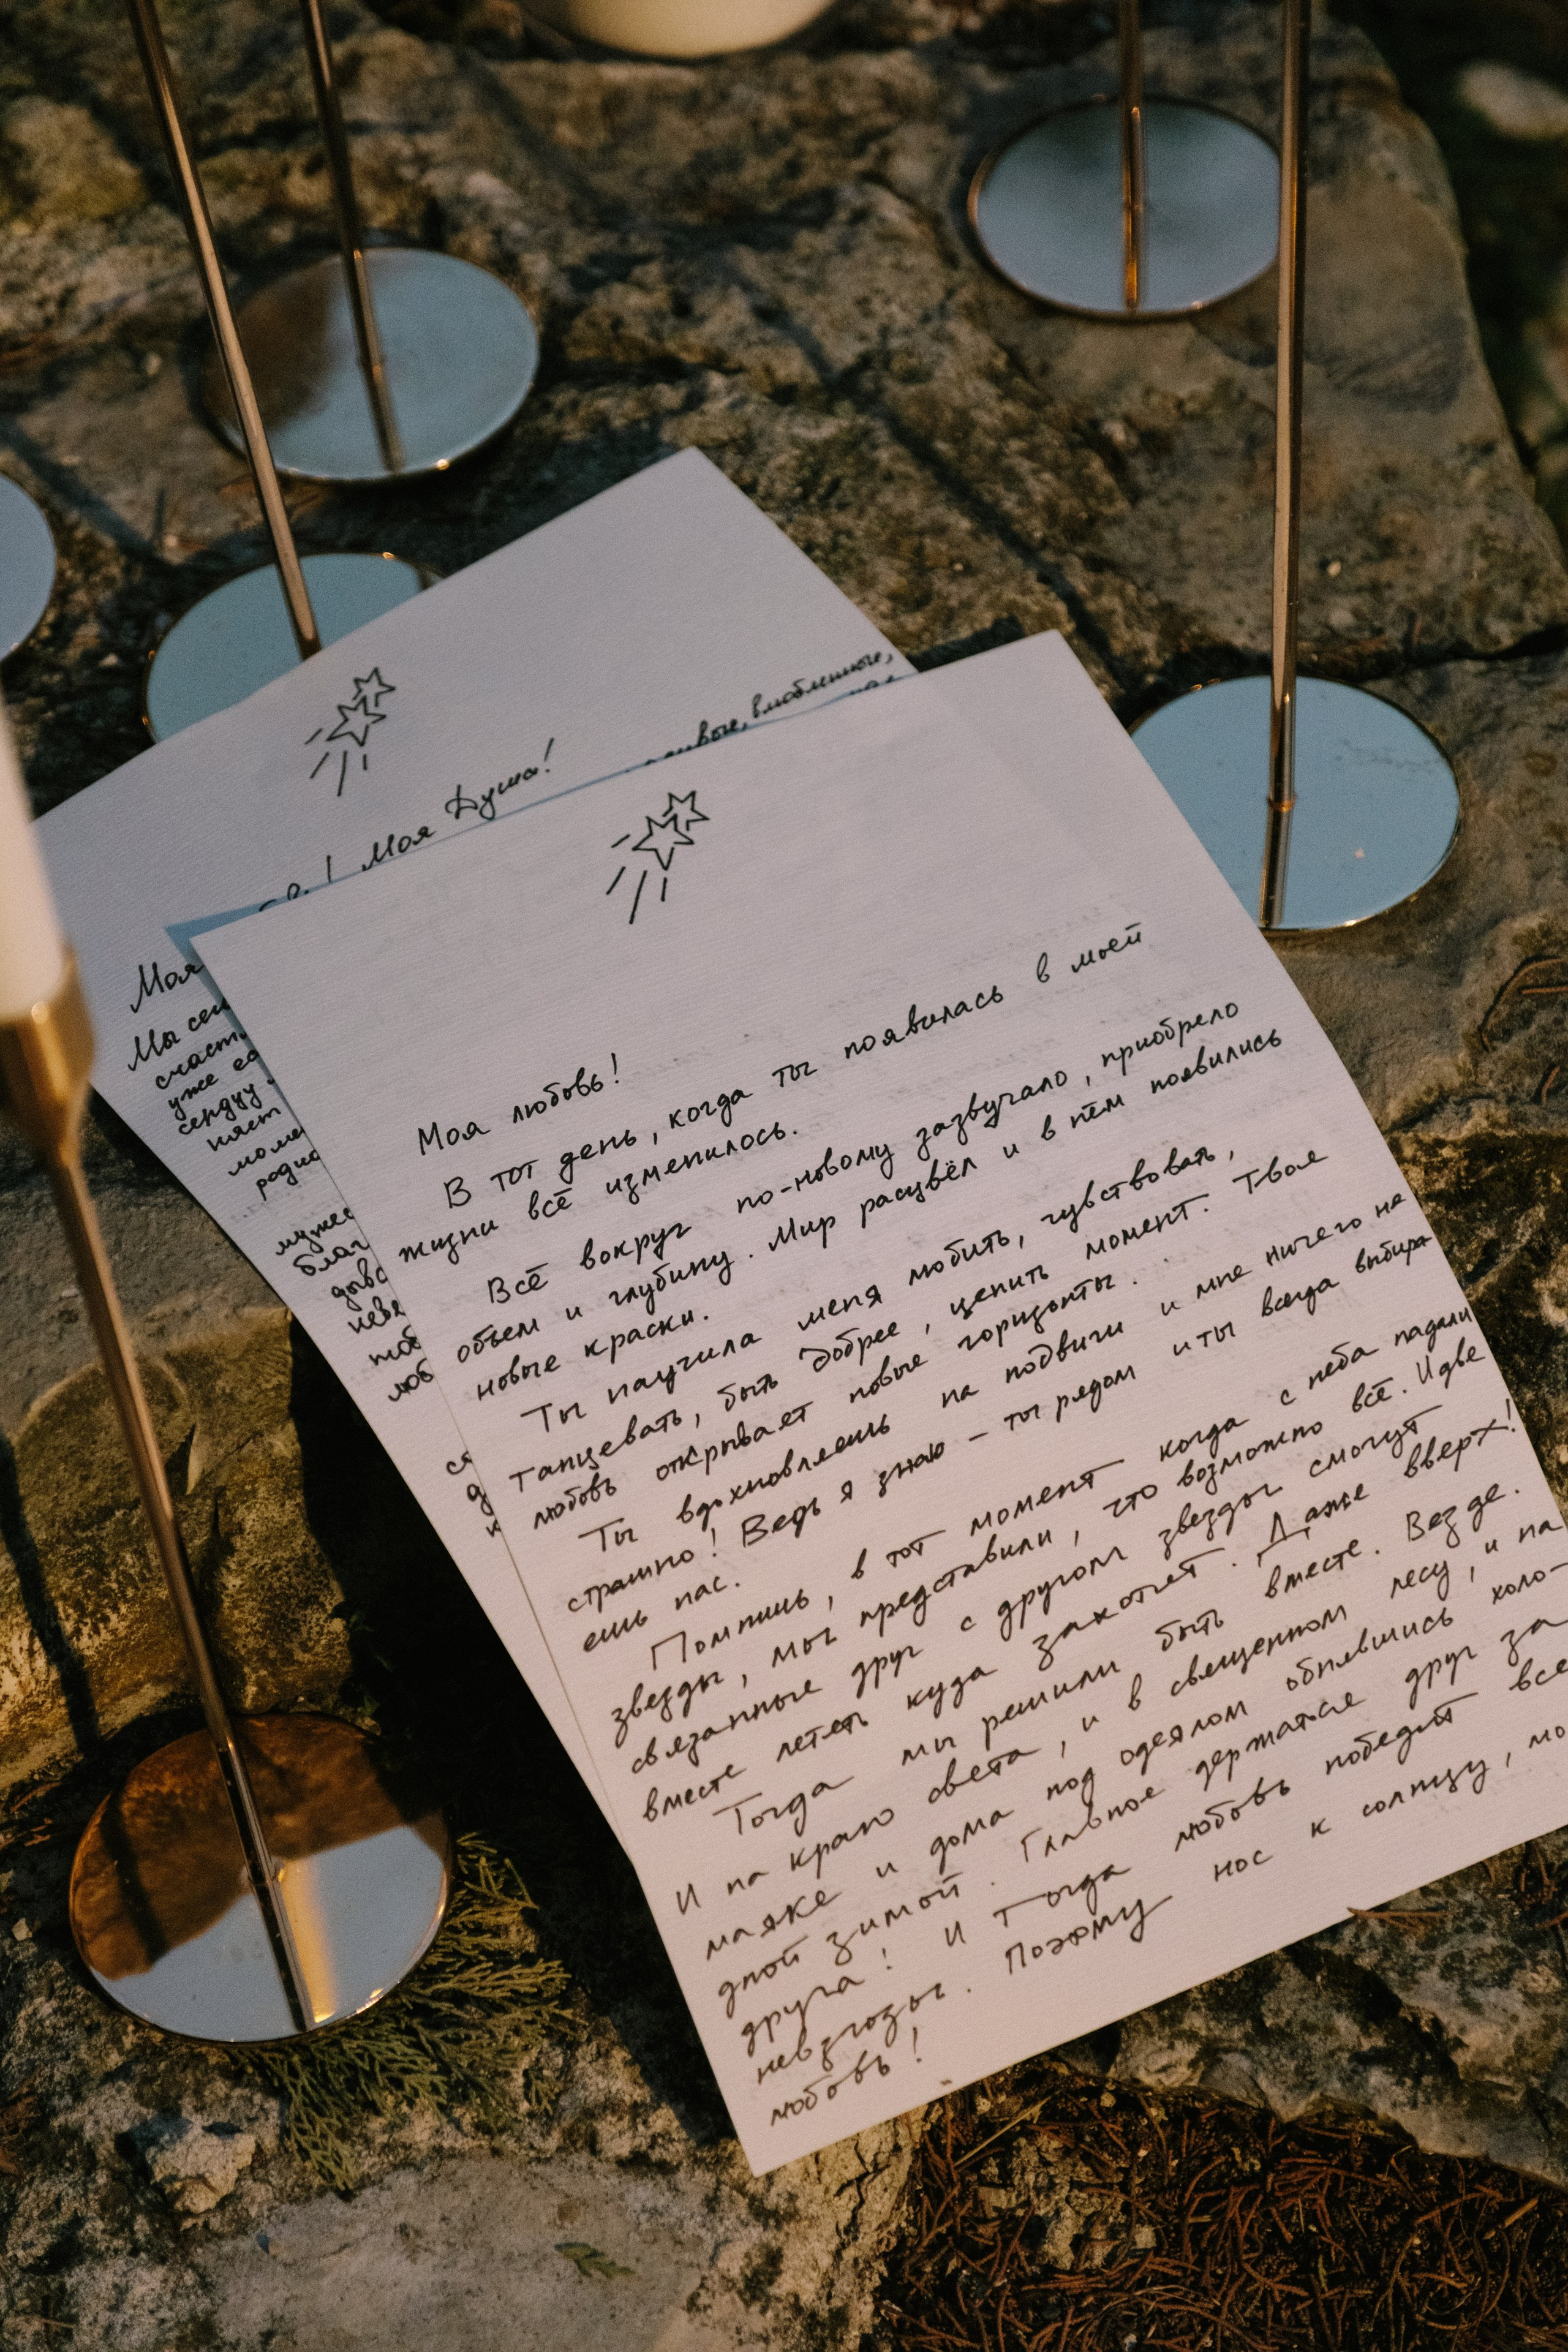 Моя Душа!
влюбленные,
Моя
Мы
счаст
уже
сердцу
няет
моме
радио
муже
благ
невя
люб
ся
д
к
Моя любовь!
В тот день, когда ты появилась в моей
жизни всё изменилось.
Всё вокруг по-новому зазвучало, приобрело
объем и глубину. Мир расцвёл и в нём появились
новые краски.
Ты научила меня любить, чувствовать,
танцевать, быть добрее, ценить момент. Твоя
любовь открывает новые горизонты.
Ты вдохновляешь на подвиги и мне ничего не
страшно! Ведь я знаю – ты рядом и ты всегда выбира
ешь нас.
Помнишь, в тот момент когда с неба падали
звезды, мы представили, что возможно всё. И две
связанные друг с другом звезды смогут
вместе лететь куда захотят. Даже вверх!
Тогда мы решили быть вместе. Везде.
И на краю света, и в священном лесу, и на
маяке и дома под одеялом обнявшись холо-
дной зимой. Главное держаться друг за
друга! И тогда любовь победит все
невзгоды. Поэтому нос к солнцу, мо
любовь!